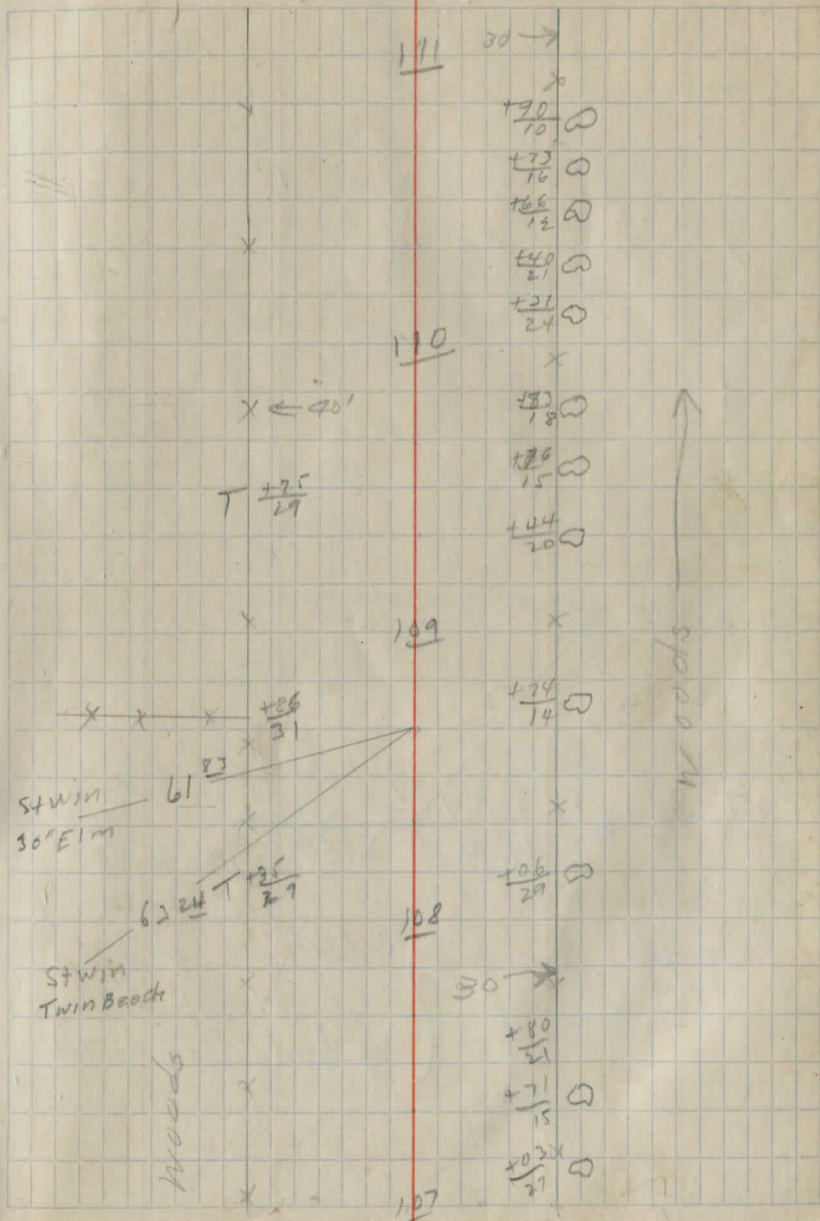 111
30 →
+90
10
+73
16
+66
12
+40
21
+31
24
110
X ← 40'
+83
18
15
T +75
29
+44
20
109
+74
14
+86
31
61 83
St win
30" Elm
+06
29
63 24
T
29
108
St win
Twin Beech
30 →
+80
+71
15
+03
27
107
Woods
Woods